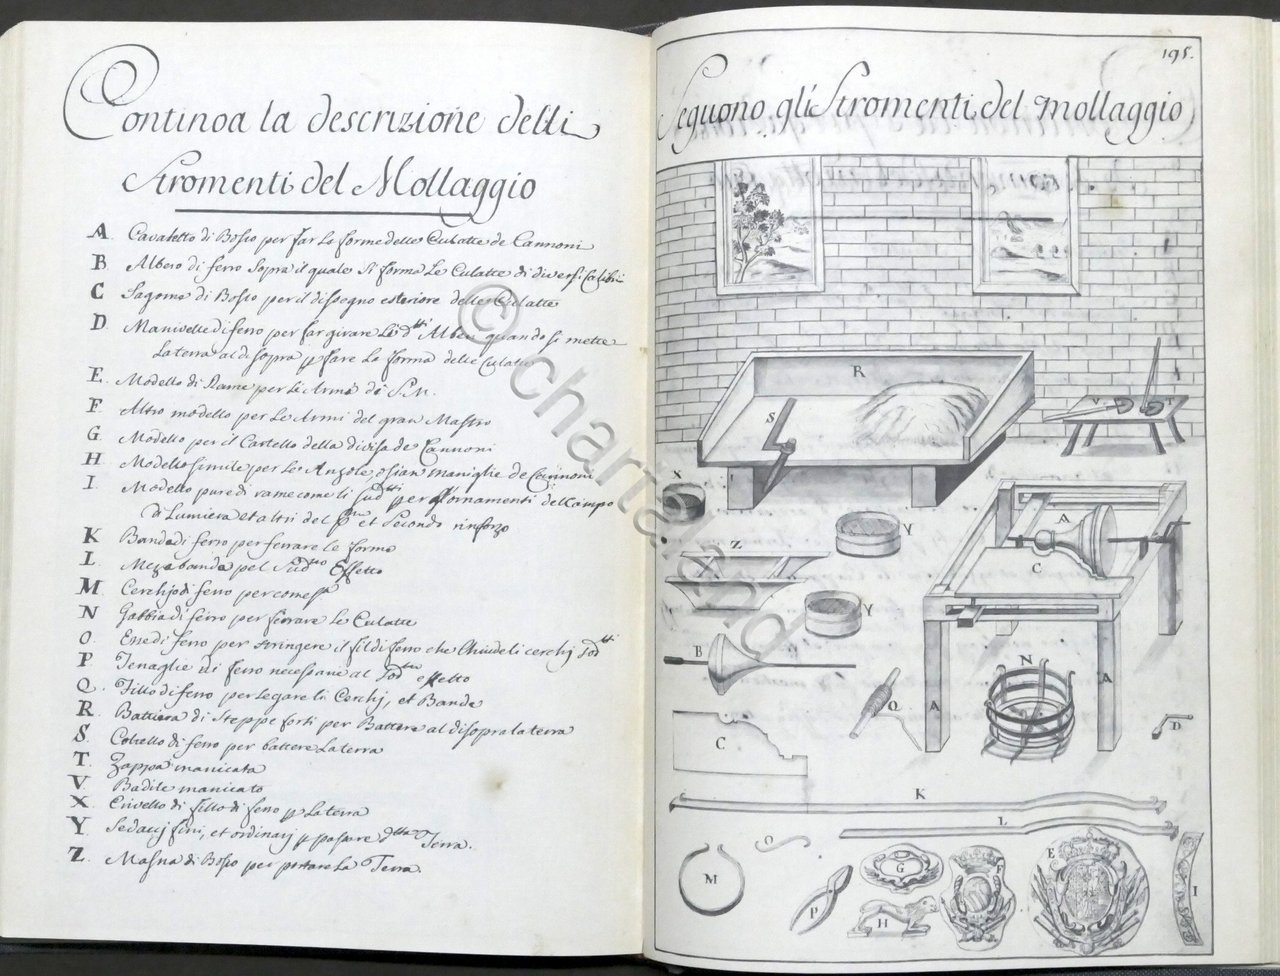 Continoa la descrizione delli
Stromenti del Mollaggio
A Cavaletto di Bosco per far le forme delle Culatte de Cannoni
B Albero di ferro Sopra il quale Si forma Le Culatte di diversi Calibri
C Sagoma di Bosco per il dissegno esteriore delle Culatte
D Manivelle di ferro per far girare Le dtti Alberi quando si mette
La terra al di sopra p fare La forma delle Culatte
E Modello di Rame per Le Arma di S.M.
F Altro modello per Le Armi del gran Mastro
G Modello per il Cartello della divisa de Cannoni
H Modello simile per le Ansole o sian maniglie de Cannoni
I Modello pure di rame come li sudtti per Ornamenti del Campo
di Lumiera et altri del pmo et Secondo rinforzo
K Banda di ferro per ferrare le forme
L Mezabanda pel Sudtto Effetto
M Cerchjo di ferro per come sa
N Gabbia di ferro per ferrare Le Culatte
O Esse di ferro per stringere il fil di ferro che Chiude li cerchj sodtti
P Tenaglie di ferro necessarie al sodtto effetto
Q Fillo di ferro per legare li Cerchj, et Bande
R Battiera di Steppe forti per Battere al disopra la terra
S Coltello di ferro per battere La terra
T Zappa manicata
V Badile manicato
X Crivello di fillo di ferro p La terra
Y Sedacij fini, et ordinarij p passare dtta Terra.
Z Masna di Bosco per portare La Terra.
195.
Seguono gli Stromenti del Mollaggio
R
S
V T
X
Y
A
Z
C
Y
B
N
Q
A
A
C
D
K
L
O
E
M
G
F
I
P
H
© chartaland